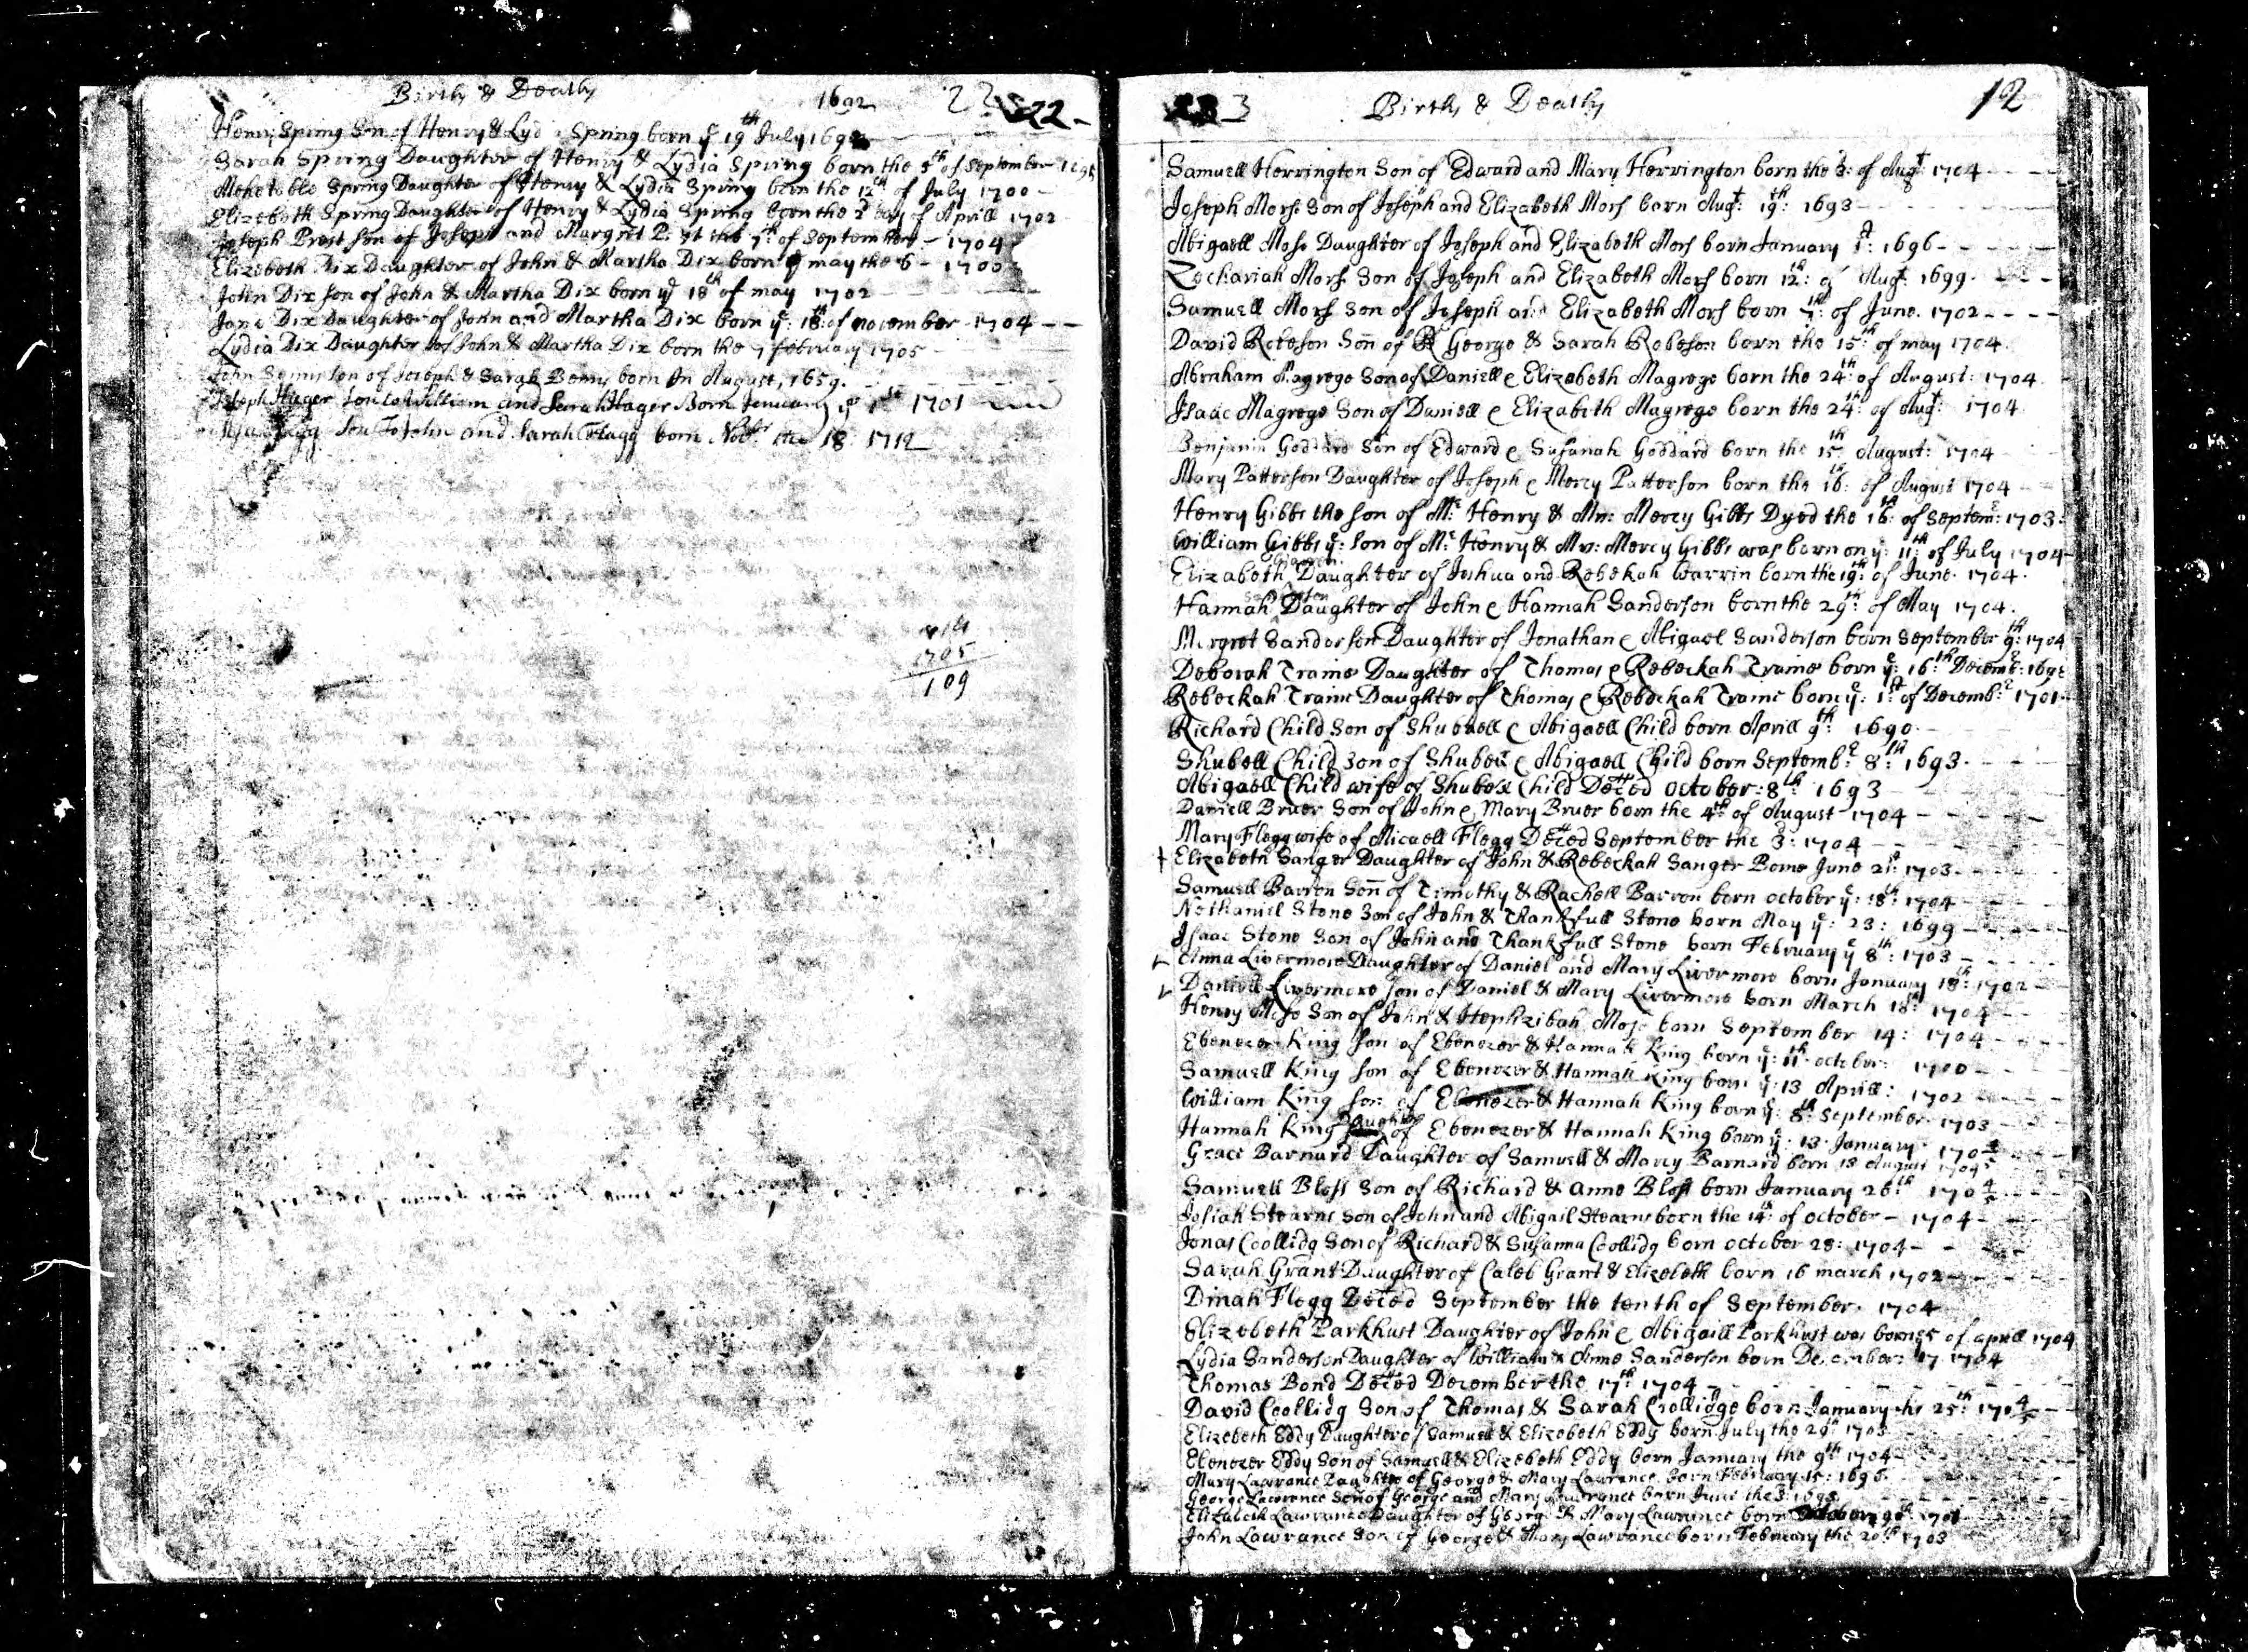 Births & Deaths
1692 22 22
Henry Spring Son of Henry & Lydia Spring born yͤ 19th July 1692
Sarah Spring Daughter of Henry & Lydia Spring born the 5th of September
Mehetoble Spring Daughter of Henry & Lydia Spring born the 12th of July 1700
Elizebeth Spring Daughter of Henry & Lydia Spring born the 2d day of Aprill 1702
Joseph Prest son of Joseph and Margret the 7th of September - 1704
Elizebeth Dix Daughter of John & Martha Dix born may the 6 - 1700
John Dix son of John & Martha Dix born yͤ 18th of may 1702
Jane Dix Daughter of John and Martha Dix born yͤ: 18th: of november - 1704
Lydia Dix Daughter of John & Martha Dix born the 7 february 1705
John son of Joseph & Sarah born In August, 1659.
Joseph Hager son to William and Sarah Hager Born Jenuary yͤ 1701
son To John and Sarah Flagg born Novbr the 18 1712
1705
109
3 Births & Deaths 12
Samuell Herrington Son of Edward and Mary Herrington born the 3: of Augt 1704
Joseph Mors Son of Joseph and Elizabeth Mors born Augt: 19th: 1693
Abigaell Mose Daughter of Joseph and Elizabeth Mors born January 1st: 1696
Zechariah Mors Son of Joseph and Elizabeth Mors born 12th: of Augt: 1699.
Samuell Mors Son of Joseph and Elizabeth Mors born 7th: of June. 1702
David Robeson Son of George & Sarah Robeson born the 15th of may 1704.
Abraham Magrege Son of Daniell e Elizebeth Magrege born the 24th: of August: 1704
Isaac Magrege Son of Daniell e Elizabeth Magrege born the 24th: of Augt: 1704
Benjamin Goddard Son of Edward e Susanah Goddard born the 15th August: 1704
Mary Patterson Daughter of Joseph e Mercy Patterson born the 16th: of August 1704
Henry Gibbs the son of Mr: Henry & Mrs: Mercy Gibbs Dyed the 16th: of Septemr: 1703:
William Gibbs yͤ: son of Mr: Henry & Mrs: Mercy Gibbs was born on yͤ: 11th: of July 1704
Elizabeth Daughter of Joshua and Rebekah Warrin born the 19th: of June. 1704.
Hannah Sanderson Daughter of John e Hannah Sanderson born the 29th: of May 1704.
Margret Sanderson Daughter of Jonathan e Abigael Sanderson born September 9th: 1704
Deborah Traine Daughter of Thomas e Rebeckah Traine born yͤ: 16:th Decembr:
Rebeckah Traine Daughter of Thomas e Rebeckah Traine born yͤ: 1st: of Decembr: 1701
Richard Child Son of Shuball e Abigaell Child born Aprill 9th: 1690
Shubell Child Son of Shubell e Abigaell Child born Septembr: 8th: 1693.
Abigaell Child wife of Shubell Child Deced October: 8th: 1693
Daniell Bruer Son of John e Mary Bruer born the 4th: of August 1704
Mary Flegg wife of Micaell Flegg Deced September the 3: 1704
Elizabeth Sanger Daughter of John & Rebeckah Sanger Borne June 21: 1703
Samuell Barron Son of Timothy & Rachell Barron born october yͤ: 18th: 1704
Nathaniel Stone Son of John & Thankfull Stone born May yͤ: 23: 1699
Isaac Stone Son of John and Thankfull Stone born February yͤ 8th: 1703
Anna Livermore Daughter of Daniel and Mary Livermore born January 18th: 1702
Daniell Livermore son of Daniel & Mary Livermore born March 18th: 1704
Henry Mose Son of John & Hephzibah Mose born September 14: 1704
Ebenezer King son of Ebenezer & Hannah King born yͤ: 11th october: 1700
Samuell King son of Ebenezer & Hannah King born yͤ: 13 Aprill: 1702
William King son of Ebenezer & Hannah King born yͤ: 8th: September 1703
Hannah King Daughter of Ebenezer & Hannah King born yͤ: 13 January 170
Grace Barnard Daughter of Samuell & Mercy Barnard born 18 August
Samuell Bloss Son of Richard & Anne Bloss born January 26th 170 4/5
Josiah Stearns Son of John and Abigail Stearns born the 14th: of october - 1704
Jonas Coollidg Son of Richard & Susanna Coollidg born october 28: 1704
Sarah Grant Daughter of Caleb Grant & Elizebeth born 16 march 1702
Dinah Flegg Deced September the tenth of September. 1704
Elizebeth Parkhust Daughter of John e Abigaill Parkhust was born of aprill 1704
Lydia Sanderson Daughter of William & Anne Sanderson born December: 17 1704
Thomas Bond Deced December the 17th: 1704
David Coollidg Son of Thomas & Sarah Coollidge born January the 25th: 170 4/5
Elizebeth Eddy Daughter of Samuell & Elizebeth Eddy born July the 29th: 1703
Ebenezer Eddy Son of Samuell & Elizebeth Eddy born January the 9th 1704
Mary Lawrance Daughter of George & Mary Lawrance born February 15: 1696.
George Lawrance Son of George and Mary Lawrance born June the 3: 1698
Elizabeth Lawrance Daughter of George & Mary Lawrance born October 9th
John Lawrance Son of George & Mary Lawrance born February the 20th 1703